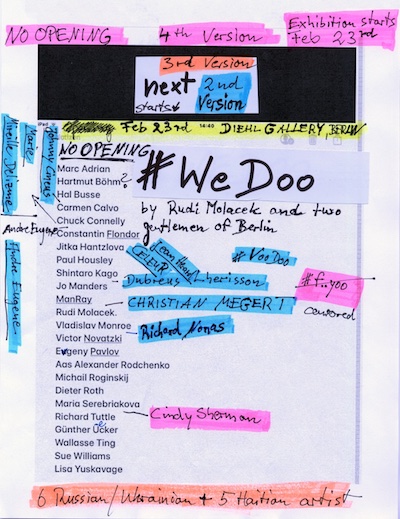 NO OPENING
4th Version
Exhibition starts
Feb 23rd
3rd Version
next
2nd
Version
starts
Feb 23rd
14:40
DIEHL GALLERY, BERLIN
NO OPENING
# WeDoo
by Rudi Molacek and two
gentlemen of Berlin
Marc Adrian
Hartmut Böhm?
Hal Busse
Carmen Calvo
Chuck Connelly
Constantin Flondor
Jitka Hantzlova
Paul Housley
Shintaro Kago
Jo Manders
ManRay
Rudi Molacek
Vladislav Monroe
Victor Novatzki
Evgeny Pavlov
Aas Alexander Rodchenko
Michail Roginskij
Dieter Roth
Maria Serebriakova
Richard Tuttle
Günther Ücker
e
Wallasse Ting
Sue Williams
Lisa Yuskavage
Andre Eugene
Andre Eugene
Jean Herard
CELEUR
# VooDoo
Dubreus Lherisson
CHRISTIAN MEGERT
Richard Nonas
# f..yoo
censored
Cindy Sherman
6 Russian/Ukrainian + 5 Haitian artist